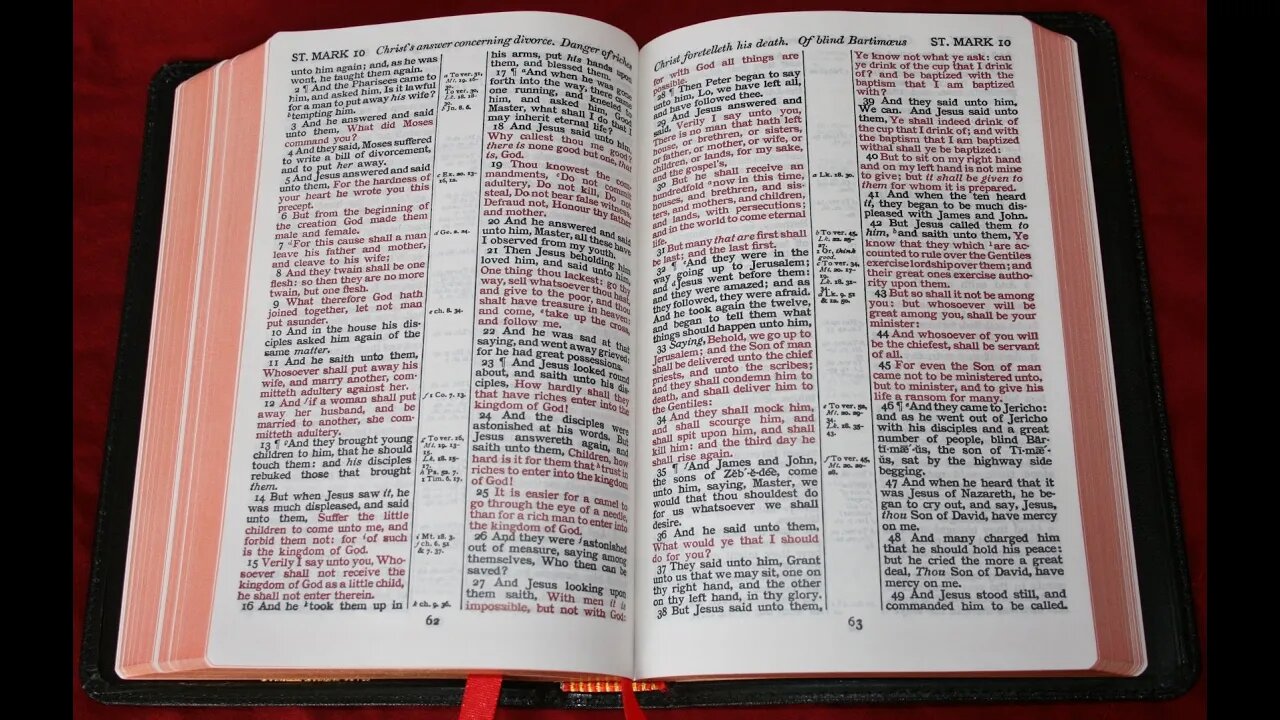 ST. MARK 10 Christ's answer concerning divorce. Danger of riches
unto him again; and, as he was
wont, he taught them again.
2 ¶ And the Pharisees came to
him, and asked him, Is it lawful
for a man to put away his wife?
tempting him.
3 And he answered and said
unto them, What did Moses
command you?
4 And they said, Moses suffered
to write a bill of divorcement,
and to put her away.
5 And Jesus answered and said
unto them, For the hardness of
your heart he wrote you this
precept.
6 But from the beginning of
the creation God made them
male and female.
7 For this cause shall a man
leave his father and mother,
and cleave to his wife;
8 And they twain shall be one
flesh: so then they are no more
twain, but one flesh.
9 What therefore God hath
joined together, let not man
put asunder.
10 And in the house his dis-
ciples asked him again of the
same matter.
11 And he saith unto them,
Whosoever shall put away his
wife, and marry another, com-
mitteth adultery against her.
12 And if a woman shall put
away her husband, and be
married to another, she com-
mitteth adultery.
13 ¶ And they brought young
children to him, that he should
touch them: and his disciples
rebuked those that brought
them.
14 But when Jesus saw it, he
was much displeased, and said
unto them, Suffer the little
children to come unto me, and
forbid them not: for of such
is the kingdom of God.
15 Verily I say unto you, Who-
soever shall not receive the
kingdom of God as a little child,
he shall not enter therein.
16 And he took them up in
a To ver. 31,
Mt. 19. 16-
30.
To ver. 30,
Lk. 18. 18-
30.
b Jn. 8. 6.
c Ex. 20. 13-
16, 12.
d Ge. 2. 24.
e ch. 8. 34.
f 1 Co. 7. 13.
g To ver. 16,
Mt. 19. 13-
15.
Lk. 18. 15-
17.
h Ps. 52. 7.
1 Tim. 6. 17.
i Mt. 18. 3.
j ch. 6. 51
& 7. 37.
k ch. 9. 36.
his arms, put his hands upon
them, and blessed them.
17 ¶ And when he was gone
forth into the way, there came
one running, and kneeled to
him, and asked him, Good
Master, what shall I do that I
may inherit eternal life?
18 And Jesus said unto him,
Why callest thou me good?
there is none good but one, that
is, God.
19 Thou knowest the com-
mandments, Do not commit
adultery, Do not kill, Do not
steal, Do not bear false witness,
Defraud not, Honour thy father
and mother.
20 And he answered and said
unto him, Master, all these have
I observed from my youth.
21 Then Jesus beholding him
loved him, and said unto him,
One thing thou lackest: go thy
way, sell whatsoever thou hast,
and give to the poor, and thou
shalt have treasure in heaven:
and come, take up the cross,
and follow me.
22 And he was sad at that
saying, and went away grieved:
for he had great possessions.
23 ¶ And Jesus looked round
about, and saith unto his dis-
ciples, How hardly shall they
that have riches enter into the
kingdom of God!
24 And the disciples were
astonished at his words. But
Jesus answereth again, and
saith unto them, Children, how
hard is it for them that trust in
riches to enter into the kingdom
of God!
25 It is easier for a camel to
go through the eye of a needle,
than for a rich man to enter into
the kingdom of God.
26 And they were astonished
out of measure, saying among
themselves, Who then can be
saved?
27 And Jesus looking upon
them saith, With men it is
impossible, but not with God:
62
Christ foretelleth his death. Of blind Bartimæus ST. MARK 10
for with God all things are
possible.
28 ¶ Then Peter began to say
unto him, Lo, we have left all,
and have followed thee.
29 And Jesus answered and
said, Verily I say unto you,
There is no man that hath left
house, or brethren, or sisters,
or father, or mother, or wife, or
children, or lands, for my sake,
and the gospel's,
30 But he shall receive an
hundredfold now in this time,
houses, and brethren, and sis-
ters, and mothers, and children,
and lands, with persecutions;
and in the world to come eternal
life.
31 But many that are first shall
be last; and the last first.
32 ¶ And they were in the
way going up to Jerusalem;
and Jesus went before them:
and they were amazed; and as
they followed, they were afraid.
And he took again the twelve,
and began to tell them what
things should happen unto him,
33 Saying, Behold, we go up to
Jerusalem; and the Son of man
shall be delivered unto the chief
priests, and unto the scribes;
and they shall condemn him to
death, and shall deliver him to
the Gentiles:
34 And they shall mock him,
and shall scourge him, and
shall spit upon him, and shall
kill him: and the third day he
shall rise again.
35 ¶ And James and John,
the sons of Zĕb´-ĕ-dēe, come
unto him, saying, Master, we
would that thou shouldest do
for us whatsoever we shall
desire.
36 And he said unto them,
What would ye that I should
do for you?
37 They said unto him, Grant
unto us that we may sit, one on
thy right hand, and the other
on thy left hand, in thy glory.
38 But Jesus said unto them,
a Lk. 18. 30.
b To ver. 45,
Lk. 22. 25-
27.
c Gr. think
good.
To ver. 34,
Mt. 20. 17-
19.
Lk. 18. 31-
33.
d Lk. 9. 51
& 12. 50.
e To ver. 52,
Mt. 20. 29-
34.
Lk. 18. 35-
43.
f To ver. 45,
Mt. 20. 20-
28.
Ye know not what ye ask: can
ye drink of the cup that I drink
of? and be baptized with the
baptism that I am baptized
with?
39 And they said unto him,
We can. And Jesus said unto
them, Ye shall indeed drink of
the cup that I drink of; and with
the baptism that I am baptized
withal shall ye be baptized:
40 But to sit on my right hand
and on my left hand is not mine
to give; but it shall be given to
them for whom it is prepared.
41 And when the ten heard
it, they began to be much dis-
pleased with James and John.
42 But Jesus called them to
him, and saith unto them, Ye
know that they which are ac-
counted to rule over the Gentiles
exercise lordship over them; and
their great ones exercise autho-
rity upon them.
43 But so shall it not be among
you: but whosoever will be
great among you, shall be your
minister:
44 And whosoever of you will
be the chiefest, shall be servant
of all.
45 For even the Son of man
came not to be ministered unto,
but to minister, and to give his
life a ransom for many.
46 ¶ And they came to Jericho:
and as he went out of Jericho
with his disciples and a great
number of people, blind Bär-
tĭ-mæ̂´-ŭs, the son of Tĭ-mæ̂´-
ŭs, sat by the highway side
begging.
47 And when he heard that it
was Jesus of Nazareth, he be-
gan to cry out, and say, Jesus,
thou Son of David, have mercy
on me.
48 And many charged him
that he should hold his peace:
but he cried the more a great
deal, Thou Son of David, have
mercy on me.
49 And Jesus stood still, and
commanded him to be called.
63